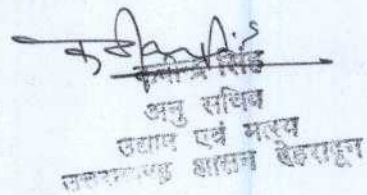 सिंह
अनु सचिव
उद्यान एवं मत्स्य
उत्तराखण्ड शासन देहरादून